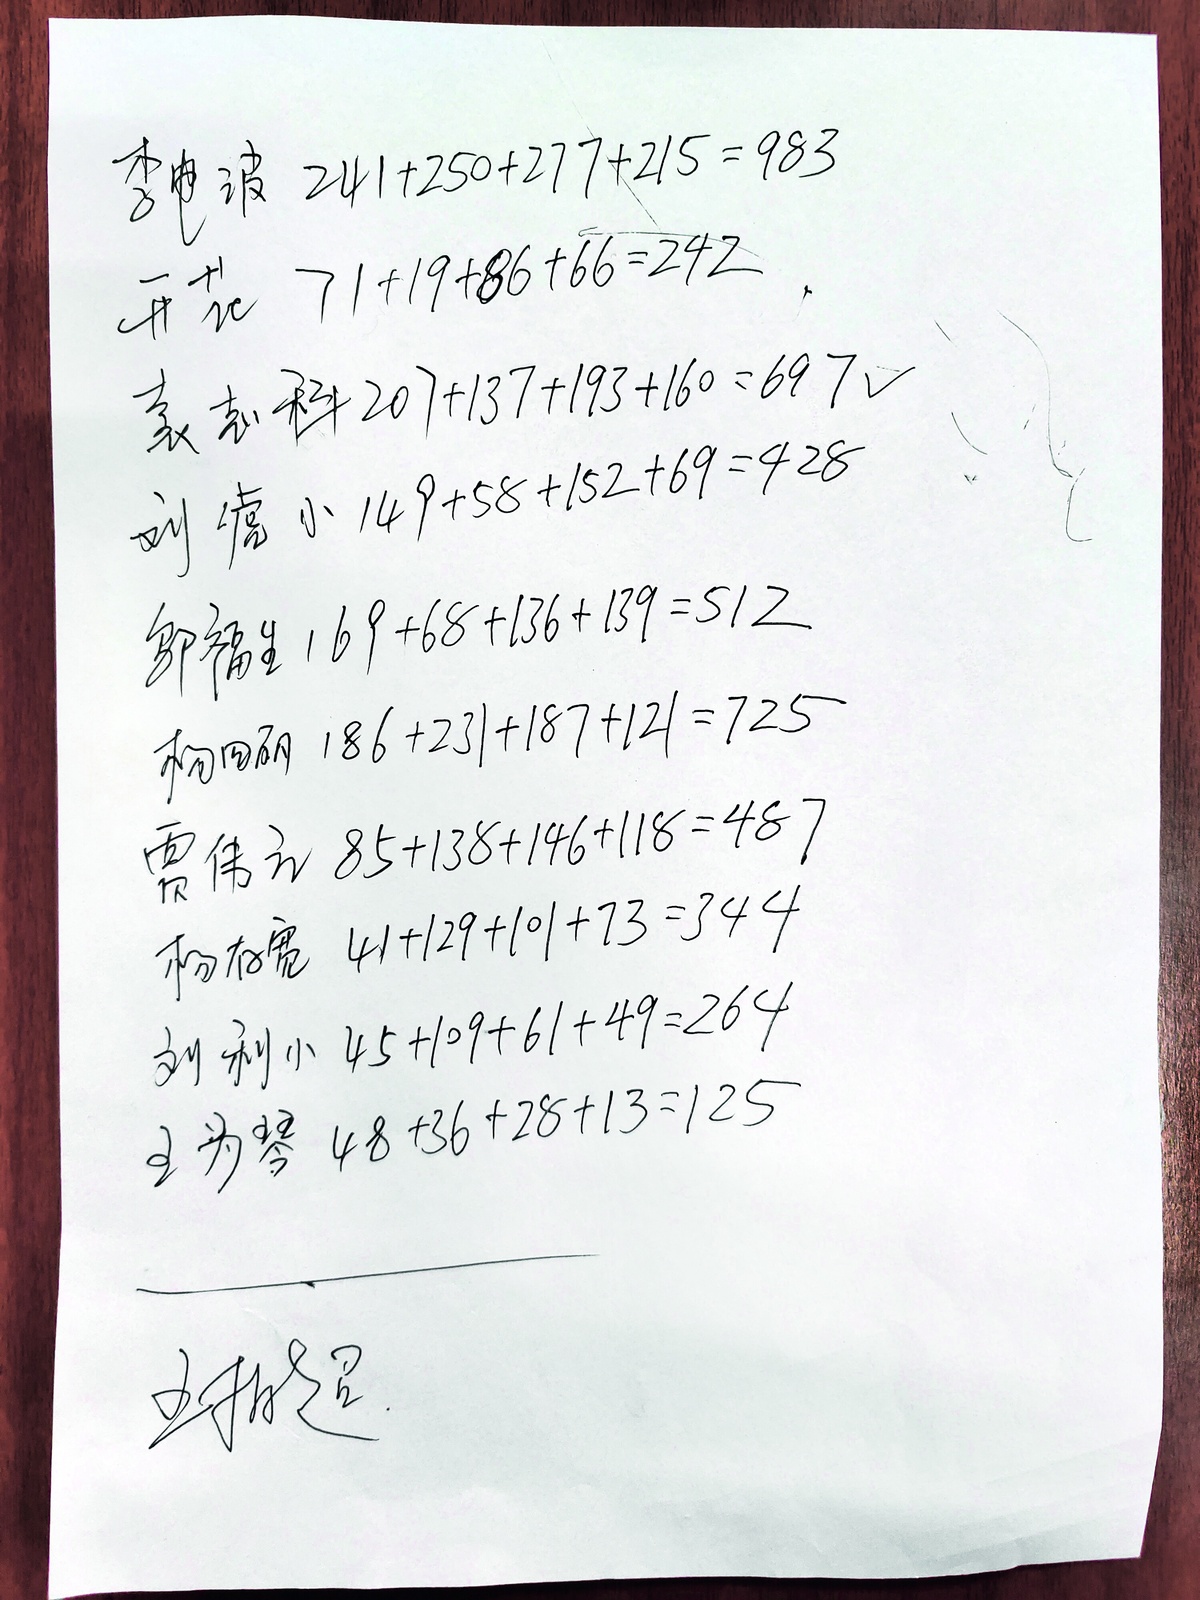 李电波 241+250+277+215=983
开花 71+19+86+66=242
袁志科 207+137+193+160=697✓
刘虎小 149+58+152+69=428
郭福生 169+68+136+139=512
杨四丽 186+231+187+121=725
贾伟元 85+138+146+118=487
杨存宽 41+129+101+73=344
刘利小 45+109+61+49=264
王为琴 48+36+28+13=125
王超